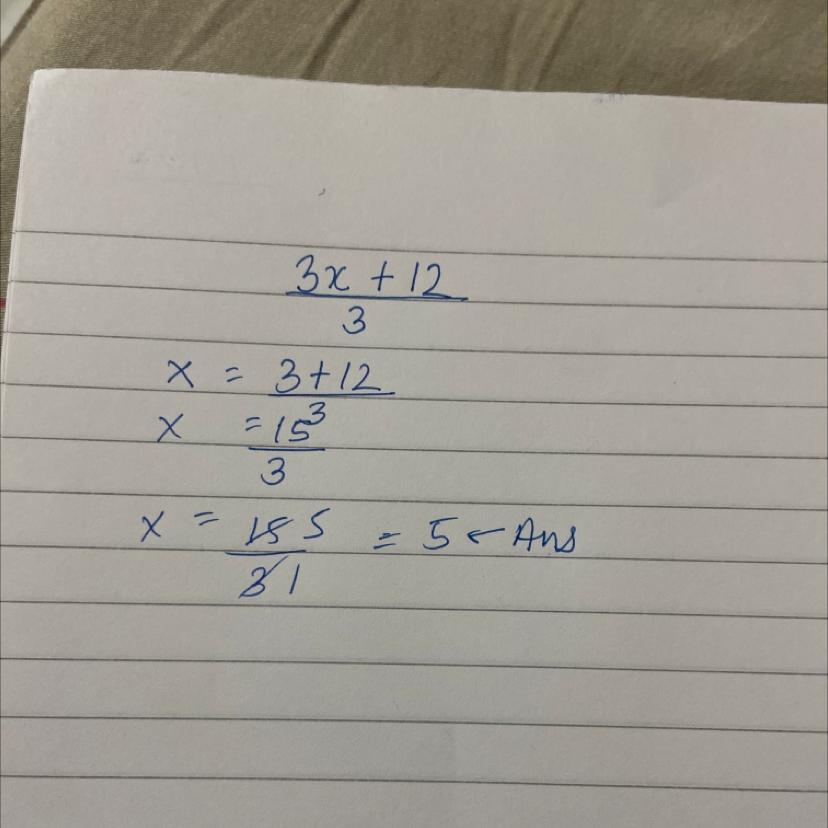 3x + 12
3
x = 3+12
x = 15 3
3
x = 15 5 = 5 ← Ans
3 1